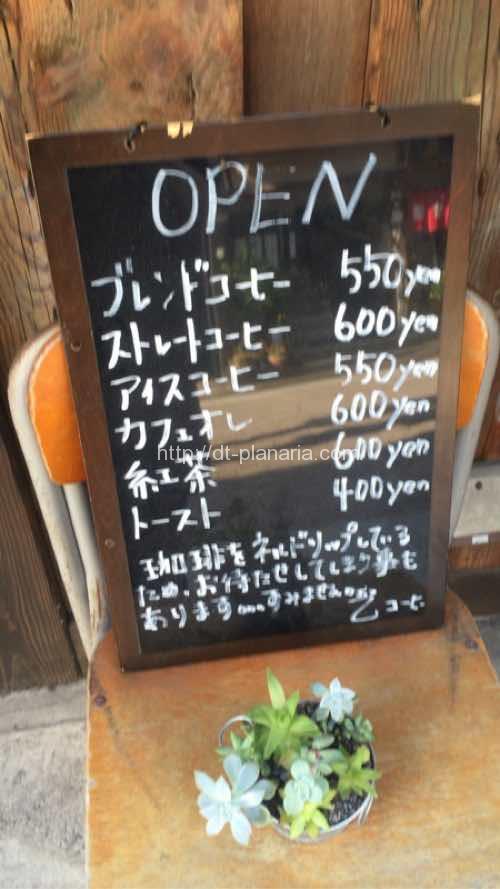 OPEN
ブレンドコーヒー 550yen
ストレートコーヒー 600yen
アイスコーヒー 550yen
カフェオレ 600yen
紅茶 600yen
トースト 400yen
珈琲をネルドリップしている
ため、お待たせしてしまう事も
あります。すみません
コーヒー
http://dt-planaria.com/